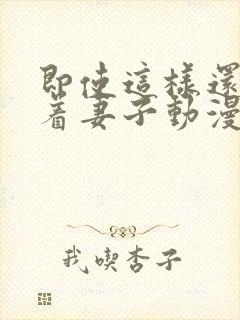 即使這樣還
着妻子動漫
我喫杏子